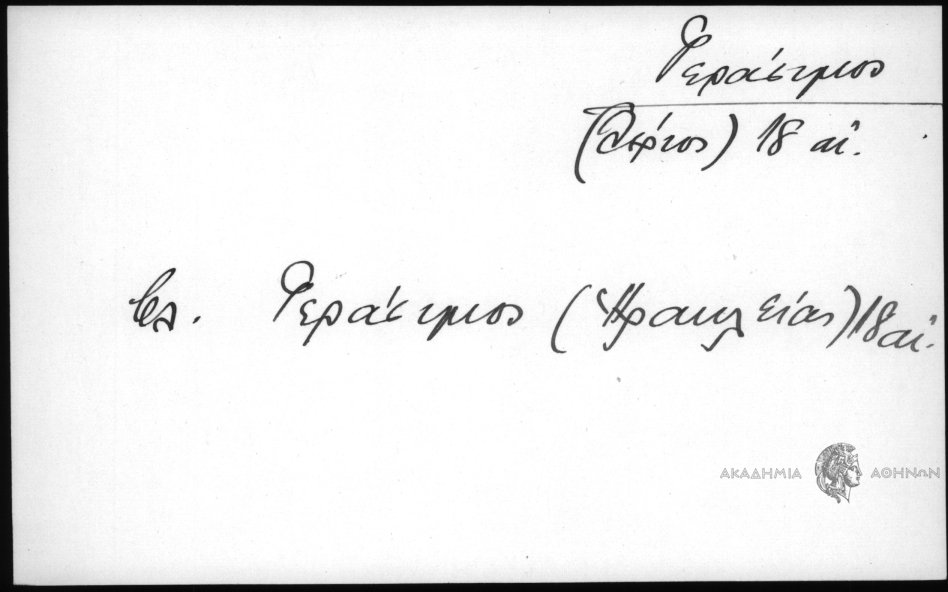 Γεράσιμος
18 αἰ.
βλ. Γεράσιμος (Ἡρακλείας) 18 αἰ.
ΑΚΑΔΗΜΙΑ ΑΘΗΝΩΝ